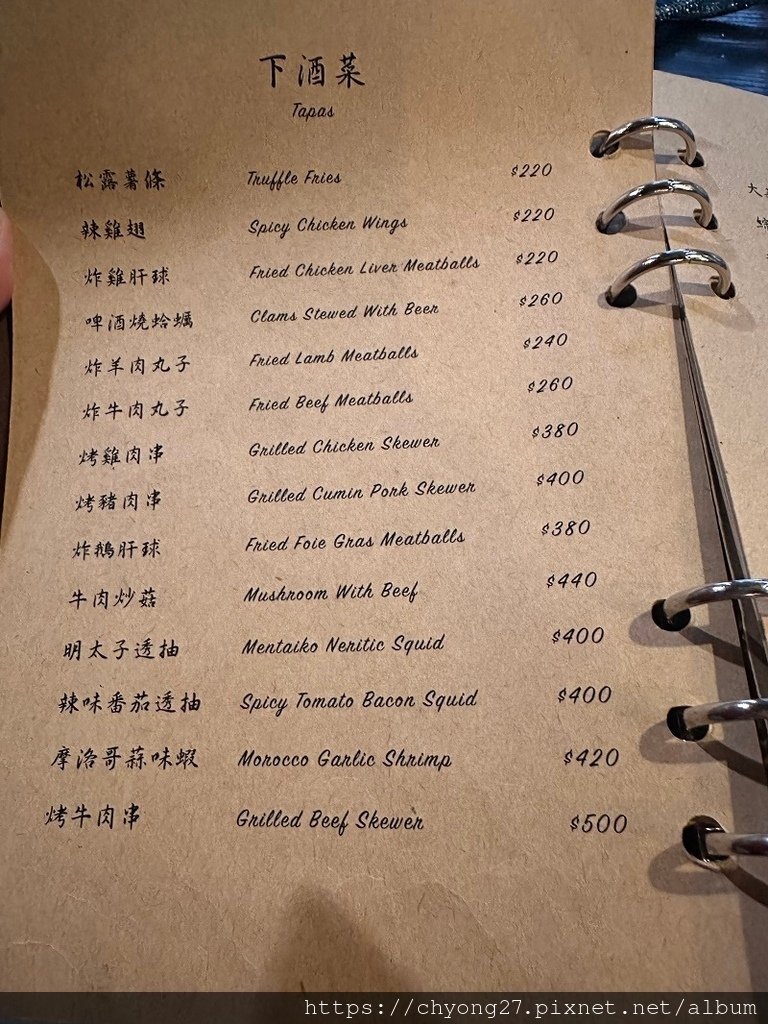 下酒菜
Tapas
松露薯條 Truffle Fries $220
辣雞翅 Spicy Chicken Wings $220
炸雞肝球 Fried Chicken Liver Meatballs $220
啤酒燒蛤蠣 Clams Stewed With Beer $260
炸羊肉丸子 Fried Lamb Meatballs $240
炸牛肉丸子 Fried Beef Meatballs $260
烤雞肉串 Grilled Chicken Skewer $380
烤豬肉串 Grilled Cumin Pork Skewer $400
炸鵝肝球 Fried Foie Gras Meatballs $380
牛肉炒菇 Mushroom With Beef $440
明太子透抽 Mentaiko Neritic Squid $400
辣味番茄透抽 Spicy Tomato Bacon Squid $400
摩洛哥蒜味蝦 Morocco Garlic Shrimp $420
烤牛肉串 Grilled Beef Skewer $500
https://chyong27.pixnet.net/album